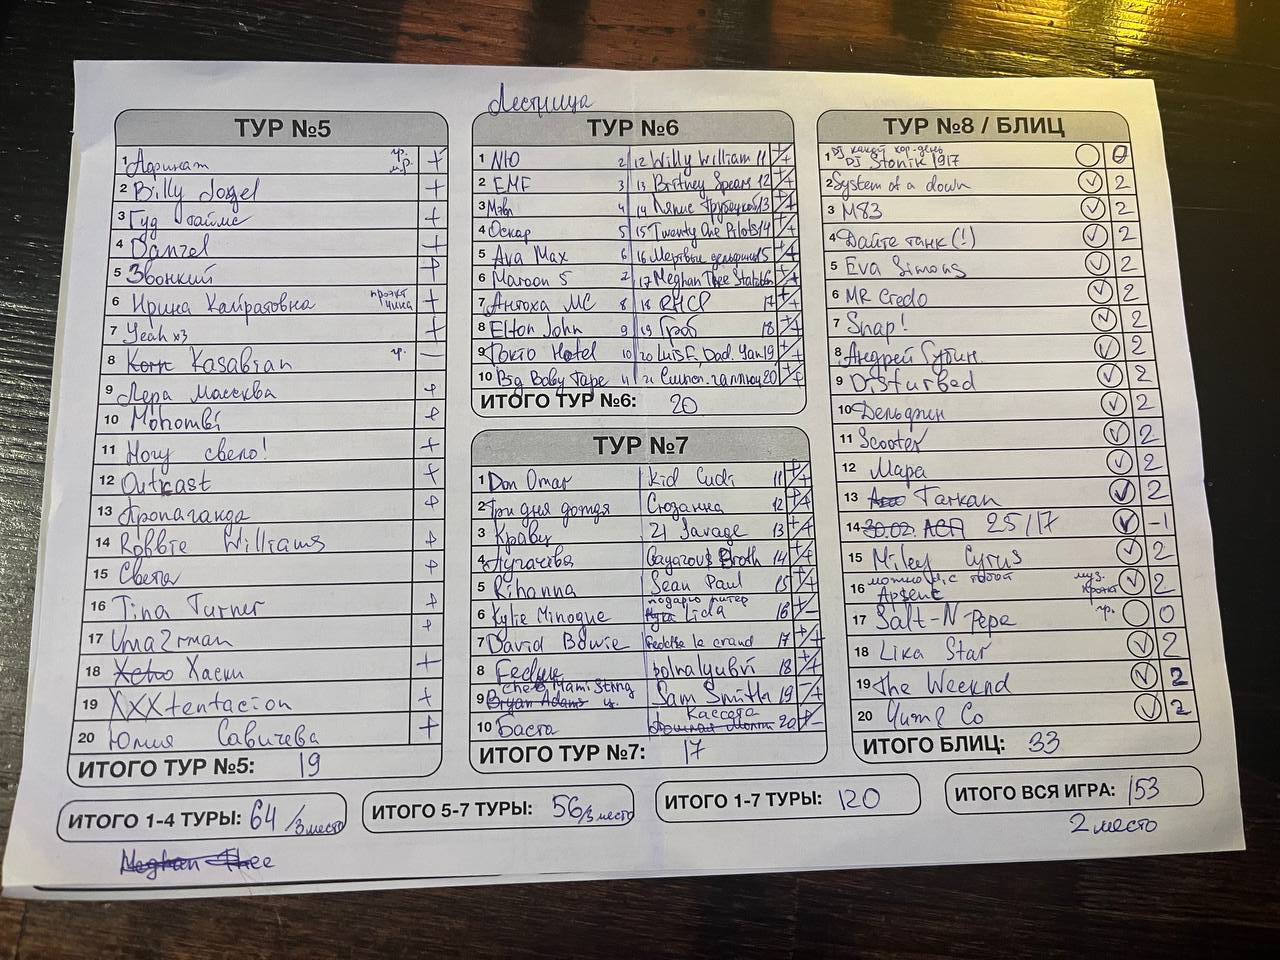 Лестница
ТУР №5
1 Афинаж гр. м.р. +
2 Billy Joel +
3 Гуд таймс +
4 Danzel +
5 Звонкий +
6 Ирина Кайратовна +
7 Yeah x3 +
8 Korn Kasabian гр. —
9 Лера Массква +
10 Mohombi +
11 Ногу свело! +
12 Outkast +
13 Пропаганда +
14 Robbie Williams +
15 Света +
16 Tina Turner +
17 Uma2rman +
18 Хаски +
19 XXXtentacion +
20 Юлия Савичева +
ИТОГО ТУР №5: 19
ТУР №6
1 NЮ 2 12 Willy William 11 +/+
2 EMF 3 13 Britney Spears 12 +/+
3 Мэвл 4 14 Ляпис Трубецкой 13 +/+
4 Оскар 5 15 Twenty One Pilots 14 +/+
5 Ava Max 6 16 Мертвые дельфины 15 +/+
6 Maroon 5 7 17 Meghan Thee Stallion +/+
7 Антоха МС 8 18 RHCP 17 +/+
8 Elton John 9 19 Гроб 18 +/+
9 Токио Hotel 10 20 Luis F. Dad. Yan 19 +/+
10 Big Baby Tape 11 21 20 +/+
ИТОГО ТУР №6: 20
ТУР №7
1 Don Omar Kid Cudi 11 +/+
2 Три дня дождя Сюзанна 12 +/+
3 Кравц 21 Savage 13 +/+
4 Пугачёва Broth 14 +/+
5 Rihanna Sean Paul 15 +/+
6 Kylie Minogue подарю питер Lida 16 +/-
7 David Bowie Fedde le Grand 17 +/+
8 Feduk polnalyubvi 18 +/+
Mami String
9 Bryan Adams Sam Smith 19 -/+
10 Баста Кассета 20 +/-
ИТОГО ТУР №7: 17
ТУР №8 / БЛИЦ
1 DJ какой кар-день
DJ Stonik 1917 0
2 System of a down ✓ 2
3 M83 ✓ 2
4 Дайте танк (!) ✓ 2
5 Eva Simons ✓ 2
6 MR Credo ✓ 2
7 Snap! ✓ 2
8 Андрей Губин ✓ 2
9 Disturbed ✓ 2
10 Дельфин ✓ 2
11 Scooter ✓ 2
12 Мара ✓ 2
13 Таркан ✓ 2
14 30.02. АСП 25/17 ✓ -1
15 Miley Cyrus ✓ 2
16 можно я с тобой муз. проект
Арsенt ✓ 2
17 Salt-N-Pepa гр. 0
18 Lika Star ✓ 2
19 The Weeknd ✓ 2
20 Чит& Co ✓ 2
ИТОГО БЛИЦ: 33
ИТОГО 1-4 ТУРЫ: 64 /3 место
ИТОГО 5-7 ТУРЫ: 56/3 место
ИТОГО 1-7 ТУРЫ: 120
ИТОГО ВСЯ ИГРА: 153
2 место
Meghan Thee